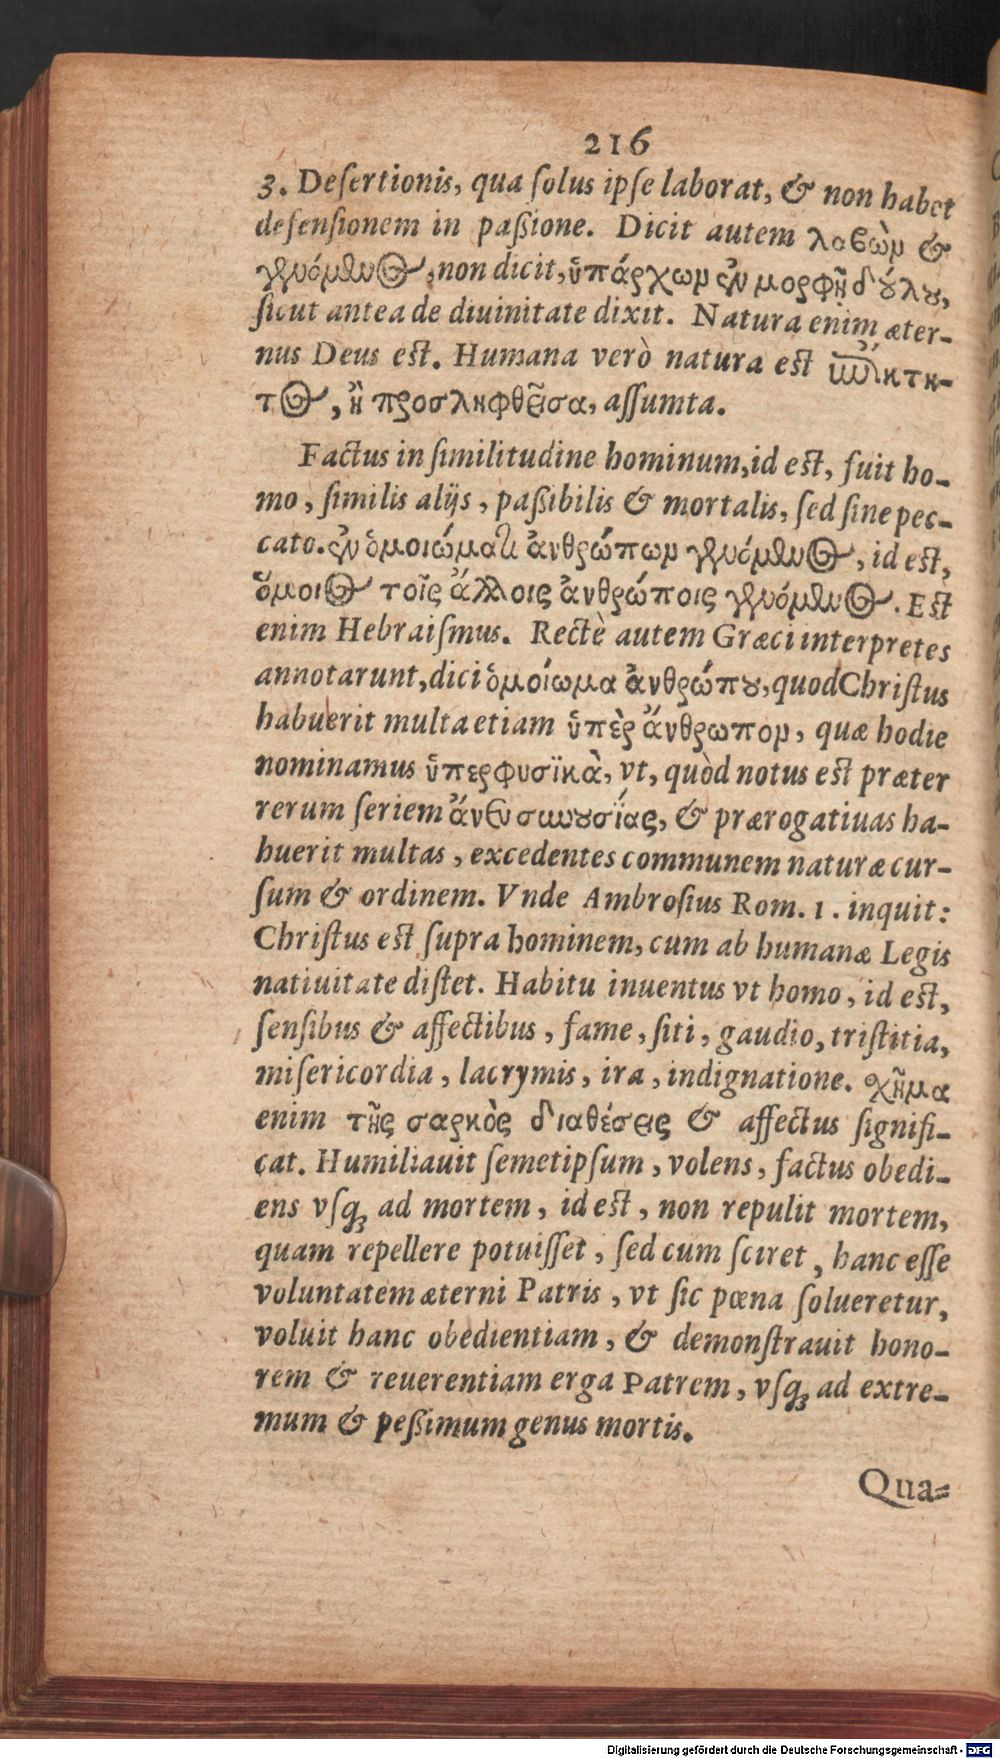 216
3. Deſertionis, qua ſolus ipſe laborat, & non habet
defenſionem in paßione. Dicit autem λαβὼν &
γενόμενος, non dicit, ὑπάρχων ἐν μορφῇ δούλου,
ſicut antea de diuinitate dixit. Natura enim æter-
nus Deus est. Humana verò natura est ἐπίκτη-
τος, ἢ προσληφθεῖσα, aſſumta.
Factus in ſimilitudine hominum, id est, fuit ho-
mo, ſimilis alijs, paßibilis & mortalis, ſed ſine pec-
cato. ἐν ὁμοιώματι ἀνθρώπων γενόμενος, id est,
ὅμοιος τοῖς ἄλλοις ἀνθρώποις γενόμενος. Est
enim Hebraiſmus. Rectè autem Græci interpretes
annotarunt, dici ὁμοίωμα ἀνθρώπου, quod Chriſtus
habuerit multa etiam ὑπὲρ ἄνθρωπον, quæ hodie
nominamus ὑπερφυσϊκὰ, vt, quòd notus est præter
rerum ſeriem ἄνευ συνουσΐας, & prærogatiuas ha-
buerit multas, excedentes communem naturæ cur-
ſum & ordinem. Vnde Ambroſius Rom. 1. inquit:
Chriſtus est ſupra hominem, cum ab humanæ Legis
natiuitate diſtet. Habitu inuentus vt homo, id est,
ſenſibus & affectibus, fame, ſiti, gaudio, triſtitia,
miſericordia, lacrymis, ira, indignatione. σχῆμα
enim τῆς σαρκὸς διαθέσεις & affectus ſignifi-
cat. Humiliauit ſemetipſum, volens, factus obedi-
ens vſq; ad mortem, id est, non repulit mortem,
quam repellere potuiſſet, ſed cum ſciret, hanc eſſe
voluntatem æterni Patris, vt ſic pœna ſolueretur,
voluit hanc obedientiam, & demonſtrauit hono-
rem & reuerentiam erga Patrem, vſq; ad extre-
mum & peßimum genus mortis.
Qua=
Digitalisierung gefördert durch die Deutsche Forschungsgemeinschaft - DFG